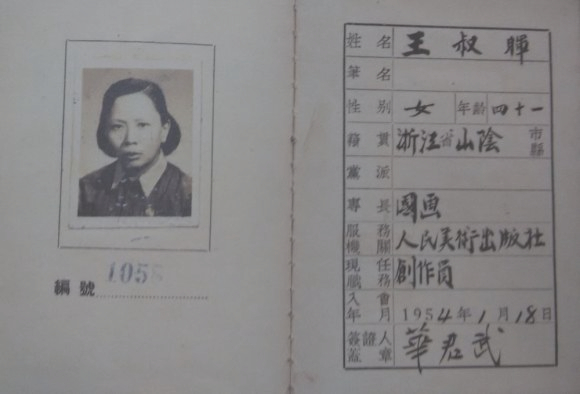 編號 105
姓名 王叔暉
筆名
性別 女 年齡 四十一
籍貫 浙江省山陰 市縣
黨派
專長 國画
服務機關 人民美術出版社
現任職務 創作員
入會年月 1954年1月18日
簽證人簽章 華君武